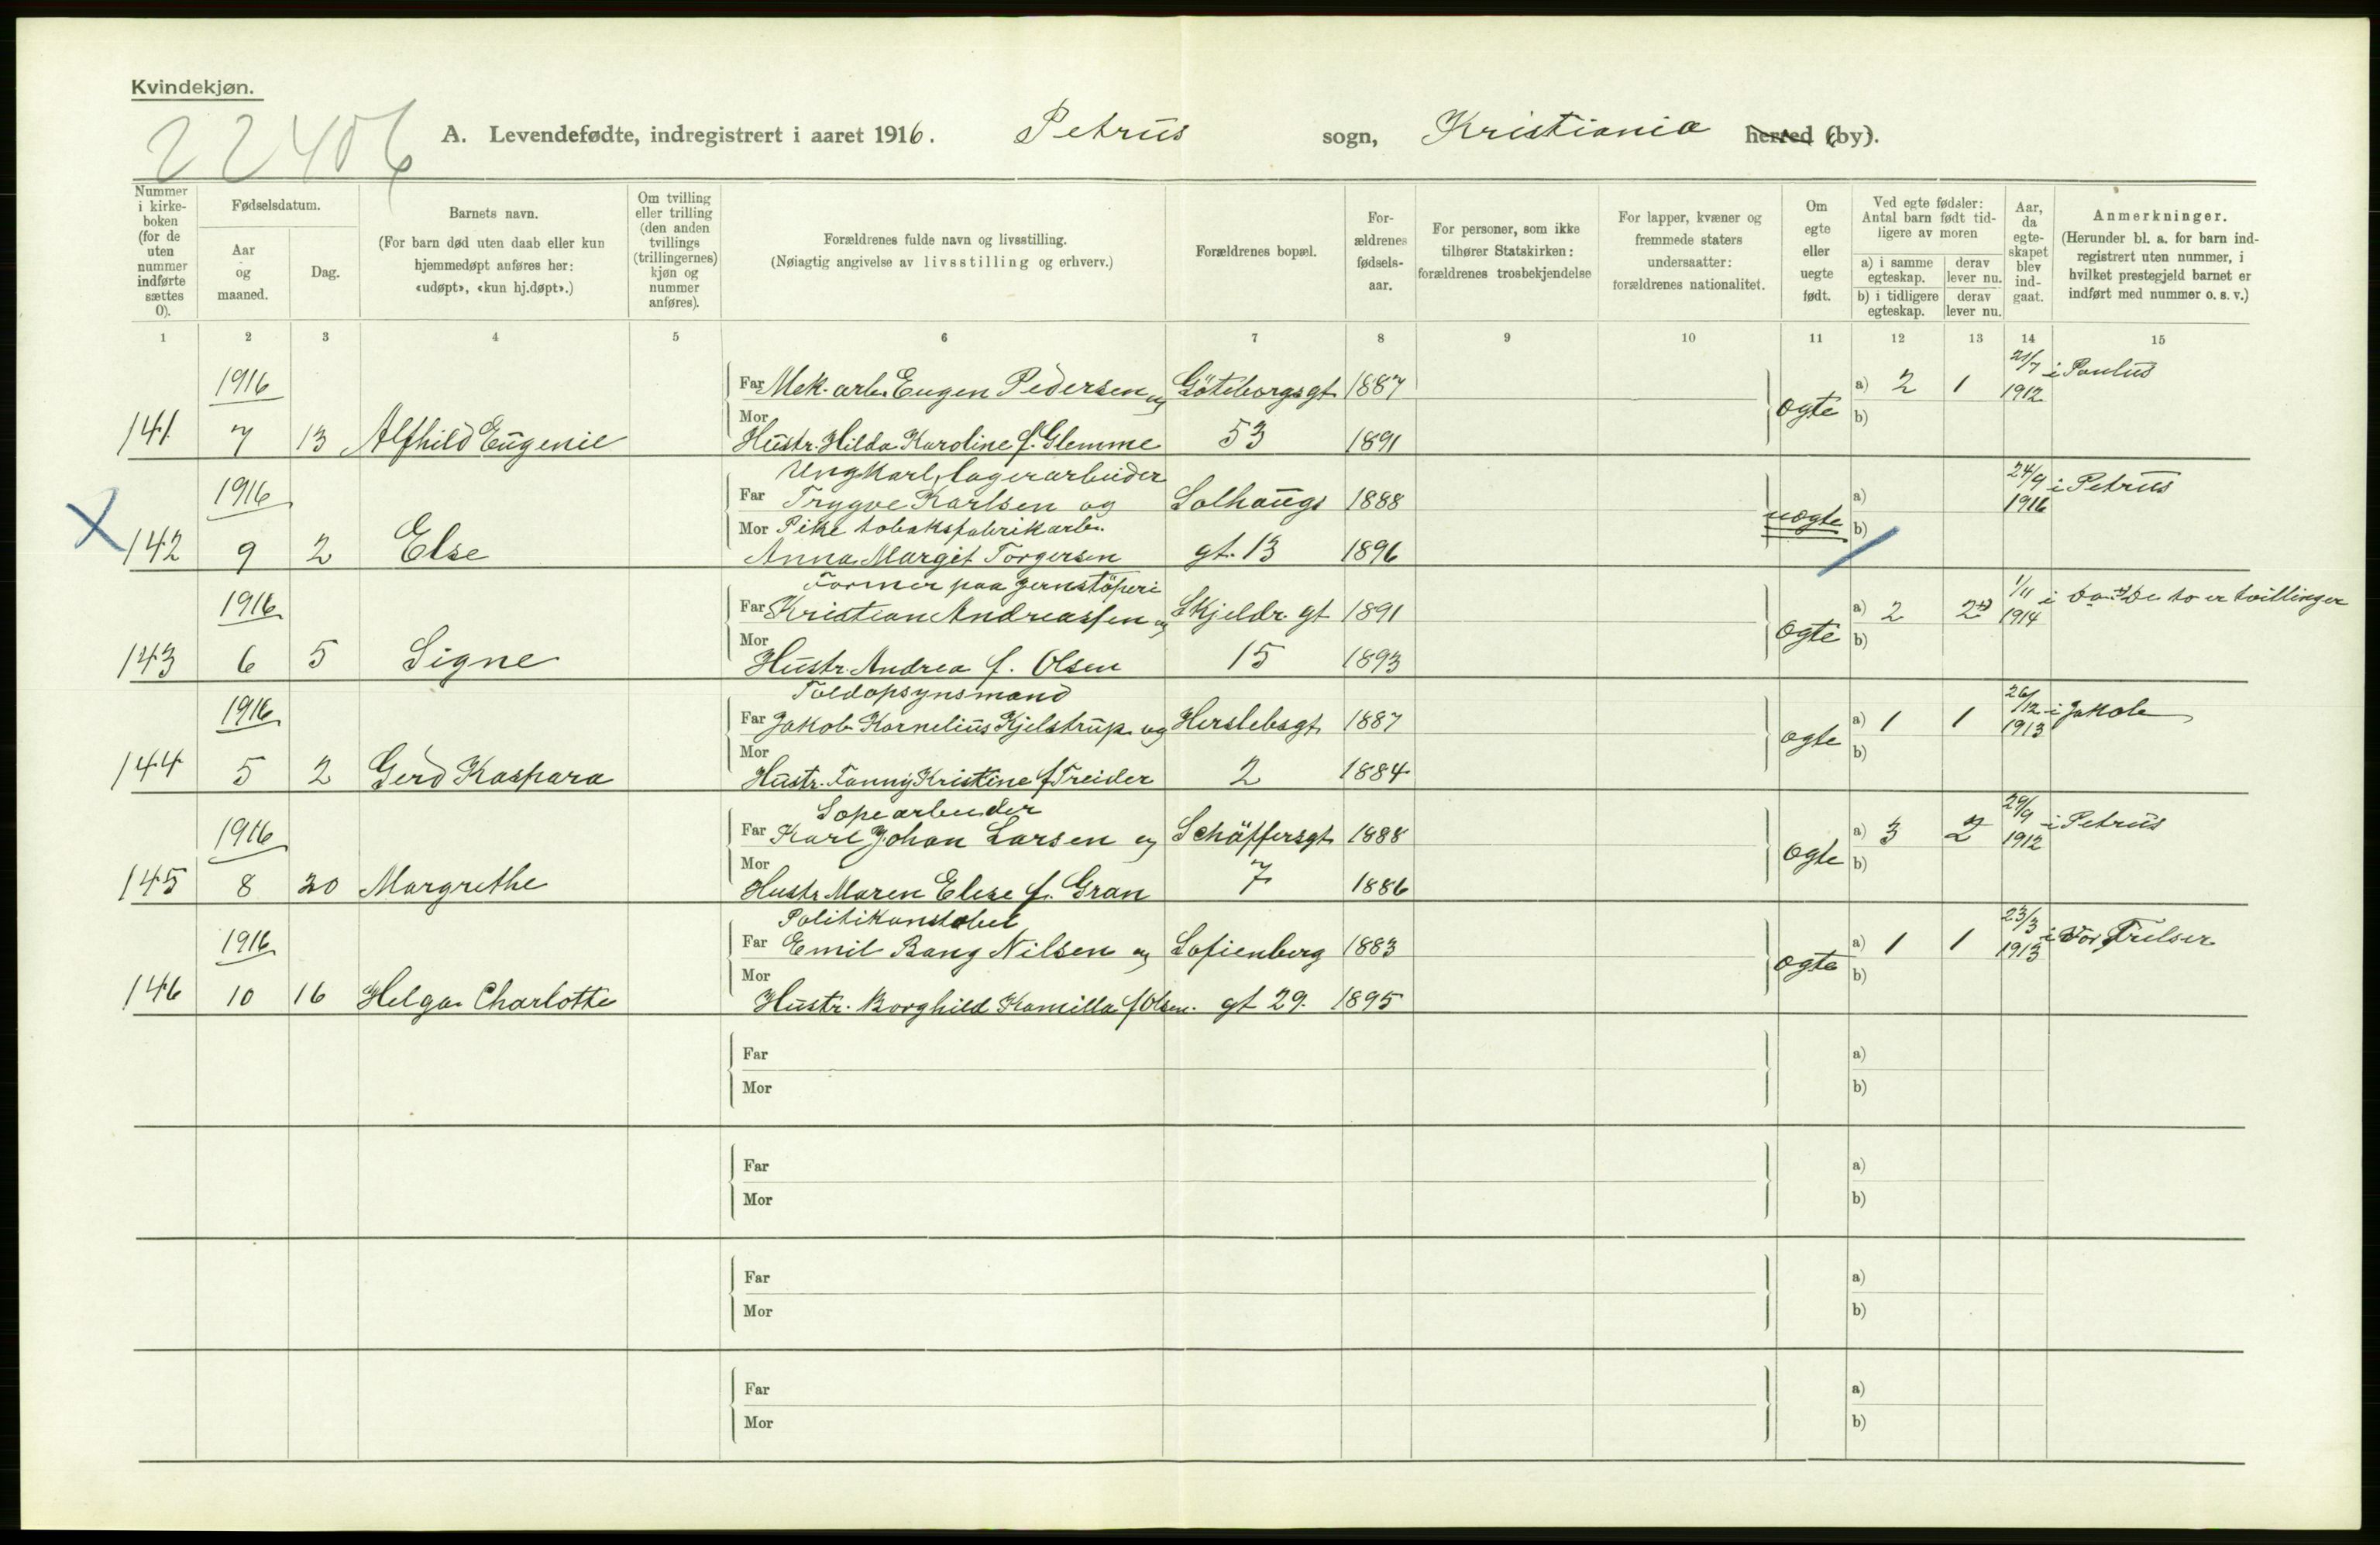 Kvindekjøn.
22406
A. Levendefødte, indregistrert i aaret 1916. Petrus sogn, Kristiania herred (by).
Nummer i kirke-boken (for de uten nummer indførte sættes 0).
Fødselsdatum.
Aar og maaned.
Dag.
Barnets navn.
(For barn død uten daab eller kun hjemmedøpt anføres her: «udøpt», «kun hj.døpt».)
Om tvilling eller trilling (den anden tvillings (trillingernes) kjøn og nummer anføres).
Forældrenes fulde navn og livsstilling.
(Nøiagtig angivelse av livsstilling og erhverv.)
Forældrenes bopæl.
For-ældrenes fødsels-aar.
For personer, som ikke tilhører Statskirken: forældrenes trosbekjendelse
For lapper, kvæner og fremmede staters undersaatter: forældrenes nationalitet.
Om egte eller uegte født.
Ved egte fødsler: Antal barn født tid-ligere av moren
a) i samme egteskap.
derav lever nu.
b) i tidligere egteskap.
derav lever nu.
Aar, da egte-skapet blev ind-gaat.
Anmerkninger.
(Herunder bl. a. for barn ind-registrert uten nummer, i hvilket prestegjeld barnet er indført med nummer o. s. v.)
1 2 3 4 5 6 7 8 9 10 11 12 13 14 15
1916 Far Mek. arb. Eugen Pedersen og Göteborgsgt. 1887 a) 2 1 21/7 1912 i Paulus
141 7 13 Alfhild Eugenie Mor Hustr. Hilda Karoline f. Glemme 53 1891 ogte b)
Ungkarl, lagerarbeider
1916 Far Trygve Karlsen og Solhaugs 1888 a) 24/9 1916 i Petrus
Mor Pike tobaksfabrikarb.
X 142 9 2 Else Anna Margit Torgersen gt. 13 1896 uogte b)
Former paa jernstöperi
1916 Far Kristian Andreassen og Skjeldr. gt 1891 a) 2 2 1/11 1914 i De to er tvillinger
143 6 5 Signe Mor Hustr. Andrea f. Olsen 15 1893 ogte b)
Toldopsynsmand
1916 Far Jakob Kornelius Kjelstrup og Herslebsgt. 1887 a) 1 1 26/12 1913 i Jakob
144 5 2 Gerd Kaspara Mor Hustr. Fanny Kristine f. Treider 2 1884 ogte b)
Sopearbeider
1916 Far Karl Johan Larsen og Schäffersgt. 1888 a) 3 2 29/9 1912 i Petrus
145 8 20 Margrethe Mor Hustr Maren Elise f. Gran 7 1886 ogte b)
Politikonstabel
1916 Far Emil Bang Nilsen og Sofienberg 1883 a) 1 1 23/3 1913 i Vor Frelser
146 10 16 Helga Charlotte Mor Hustr. Borghild Kamilla f Olsen. gt 29. 1895 ogte b)
Far a)
Mor b)
Far a)
Mor b)
Far a)
Mor b)
Far a)
Mor b)